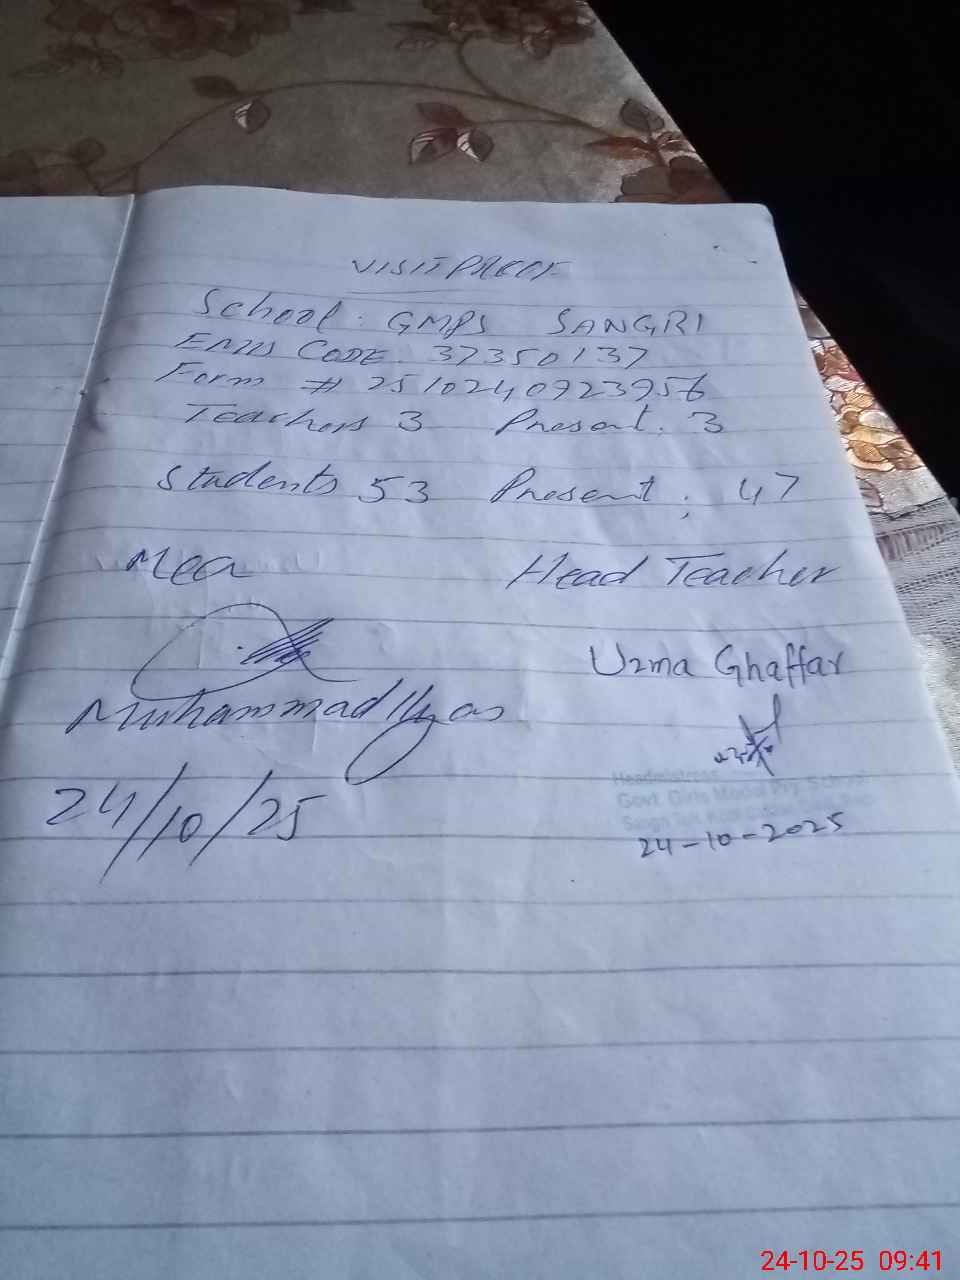 VISIT PROOF
School : GMPS SANGRI
EMIS CODE. 37350137
Form # 2510240923956
Teachers 3 Present. 3
Students 53 Present : 47
Mea Head Teacher
Uzma Ghaffar
Muhammad Ilyas
Headmistress
Govt. Girls Model Pry. School
24/10/25
24-10-2025
24-10-25 09:41